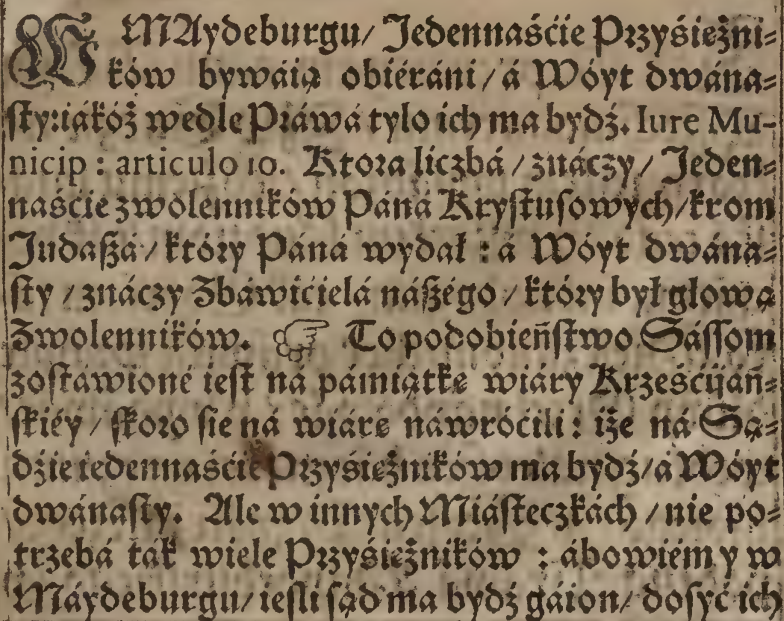 W MAydeburgu/ Jedennaśćie Przyśiężni-
ków bywáią obiéráni/ á Wóyt dwána-
sty: iákóż wedle Práwá tylo ich ma bydź. Iure Mu-
nicip: articulo 10. Ktora liczbá/ znáczy/ Jeden-
naśćie zwolenników Páná Krystusowych/ krom
Judaßá/ który Páná wydał: á Wóyt dwána-
sty/ znáczy Zbáwićielá náßégo/ który był głową
Zwolenników. ☞ To podobieństwo Sássom
zostáwioné iest ná pámiątkę wiáry Krześćijáń-
skiéy/ skoro sie ná wiárę náwróćili: iże ná Są-
dźie iedennaśćie Przyśiężników ma bydź/ á Wóyt
dwánasty. Ale w innych Miásteczkách/ nie po-
trzebá ták wiele Przyśiężników: ábowiém y w
Máydeburgu/ iesli sąd ma bydź gáion/ dosyć ich